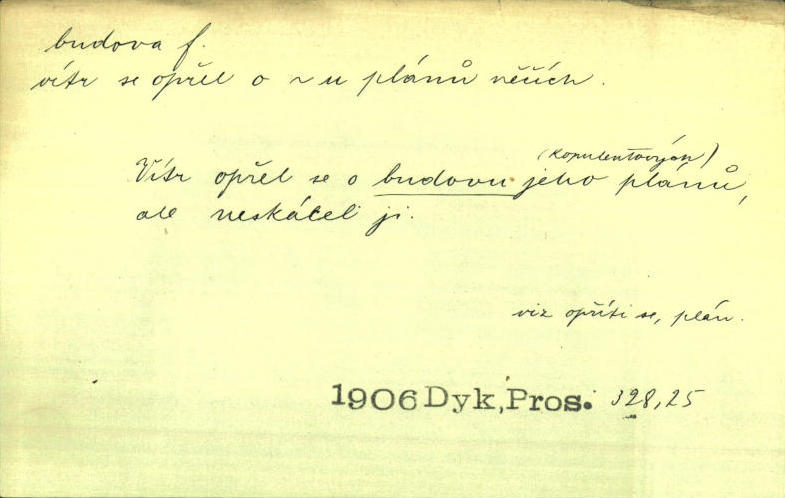 budova f.
vítr se opřel o ~u plánů něčích.
(Konulentových)
Vítr opřel se o budovu jeho plánů,
ale neskácel ji.
viz opříti se, plán.
1906 Dyk, Pros. 328,25